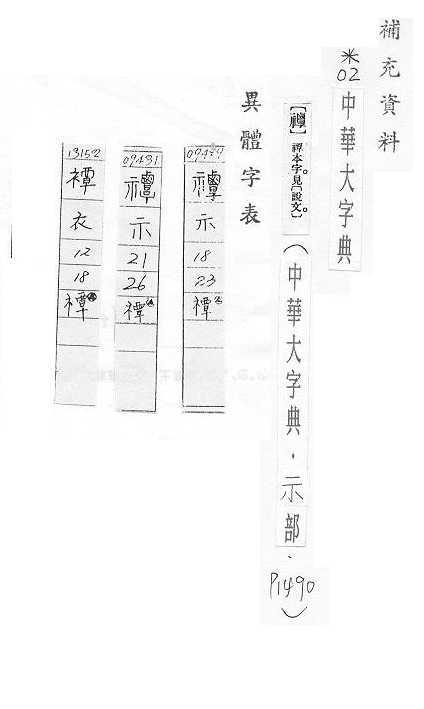 補充資料
※02中華大字典
【𥛱】禫本字。見〔說文〕。(中華大字典.示部.P1490)
異體字表
示
18
23
禫
09431
示
21
26
禫
13152
衣
12
18
禫